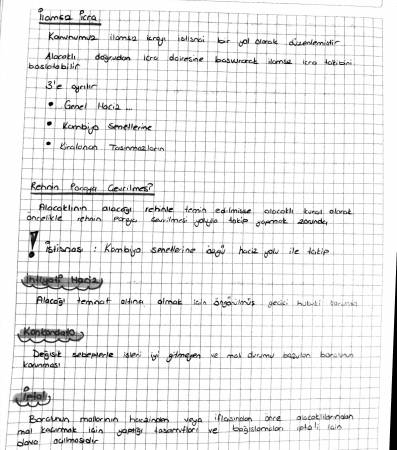 İlamsız İcra
Kanunumuz ilamsız icrayı istisnai bir yol olarak düzenlemiştir
Alacaklı doğrudan icra dairesine başvurarak ilamsız icra takibini
başlatabilir
3'e ayrılır
• Genel Haciz ...
• Kambiyo Senetlerine
• Kiralanan Taşınmazların
Rehnin Paraya Çevrilmesi?
Alacaklının alacağı rehinle temin edilmişse alacaklı kural olarak
öncelikle rehnin paraya çevrilmesi yoluyla takip yapmak zorunda
! İstisnası : Kambiyo senetlerine özgü haciz yolu ile takip
İhtiyati Haciz
Alacağı teminat altına almak için öngörülmüş geçici hukuki koruma
Konkordato
Değişik sebeplerle işleri iyi gitmeyen ve mal durumu bozulan borçlunun
korunması
İptal
Borçlunun mallarının haczinden veya iflasından önce alacaklılarından
mal kaçırmak için yaptığı tasarrufları ve bağışlamaları iptali için
dava açılmasıdır